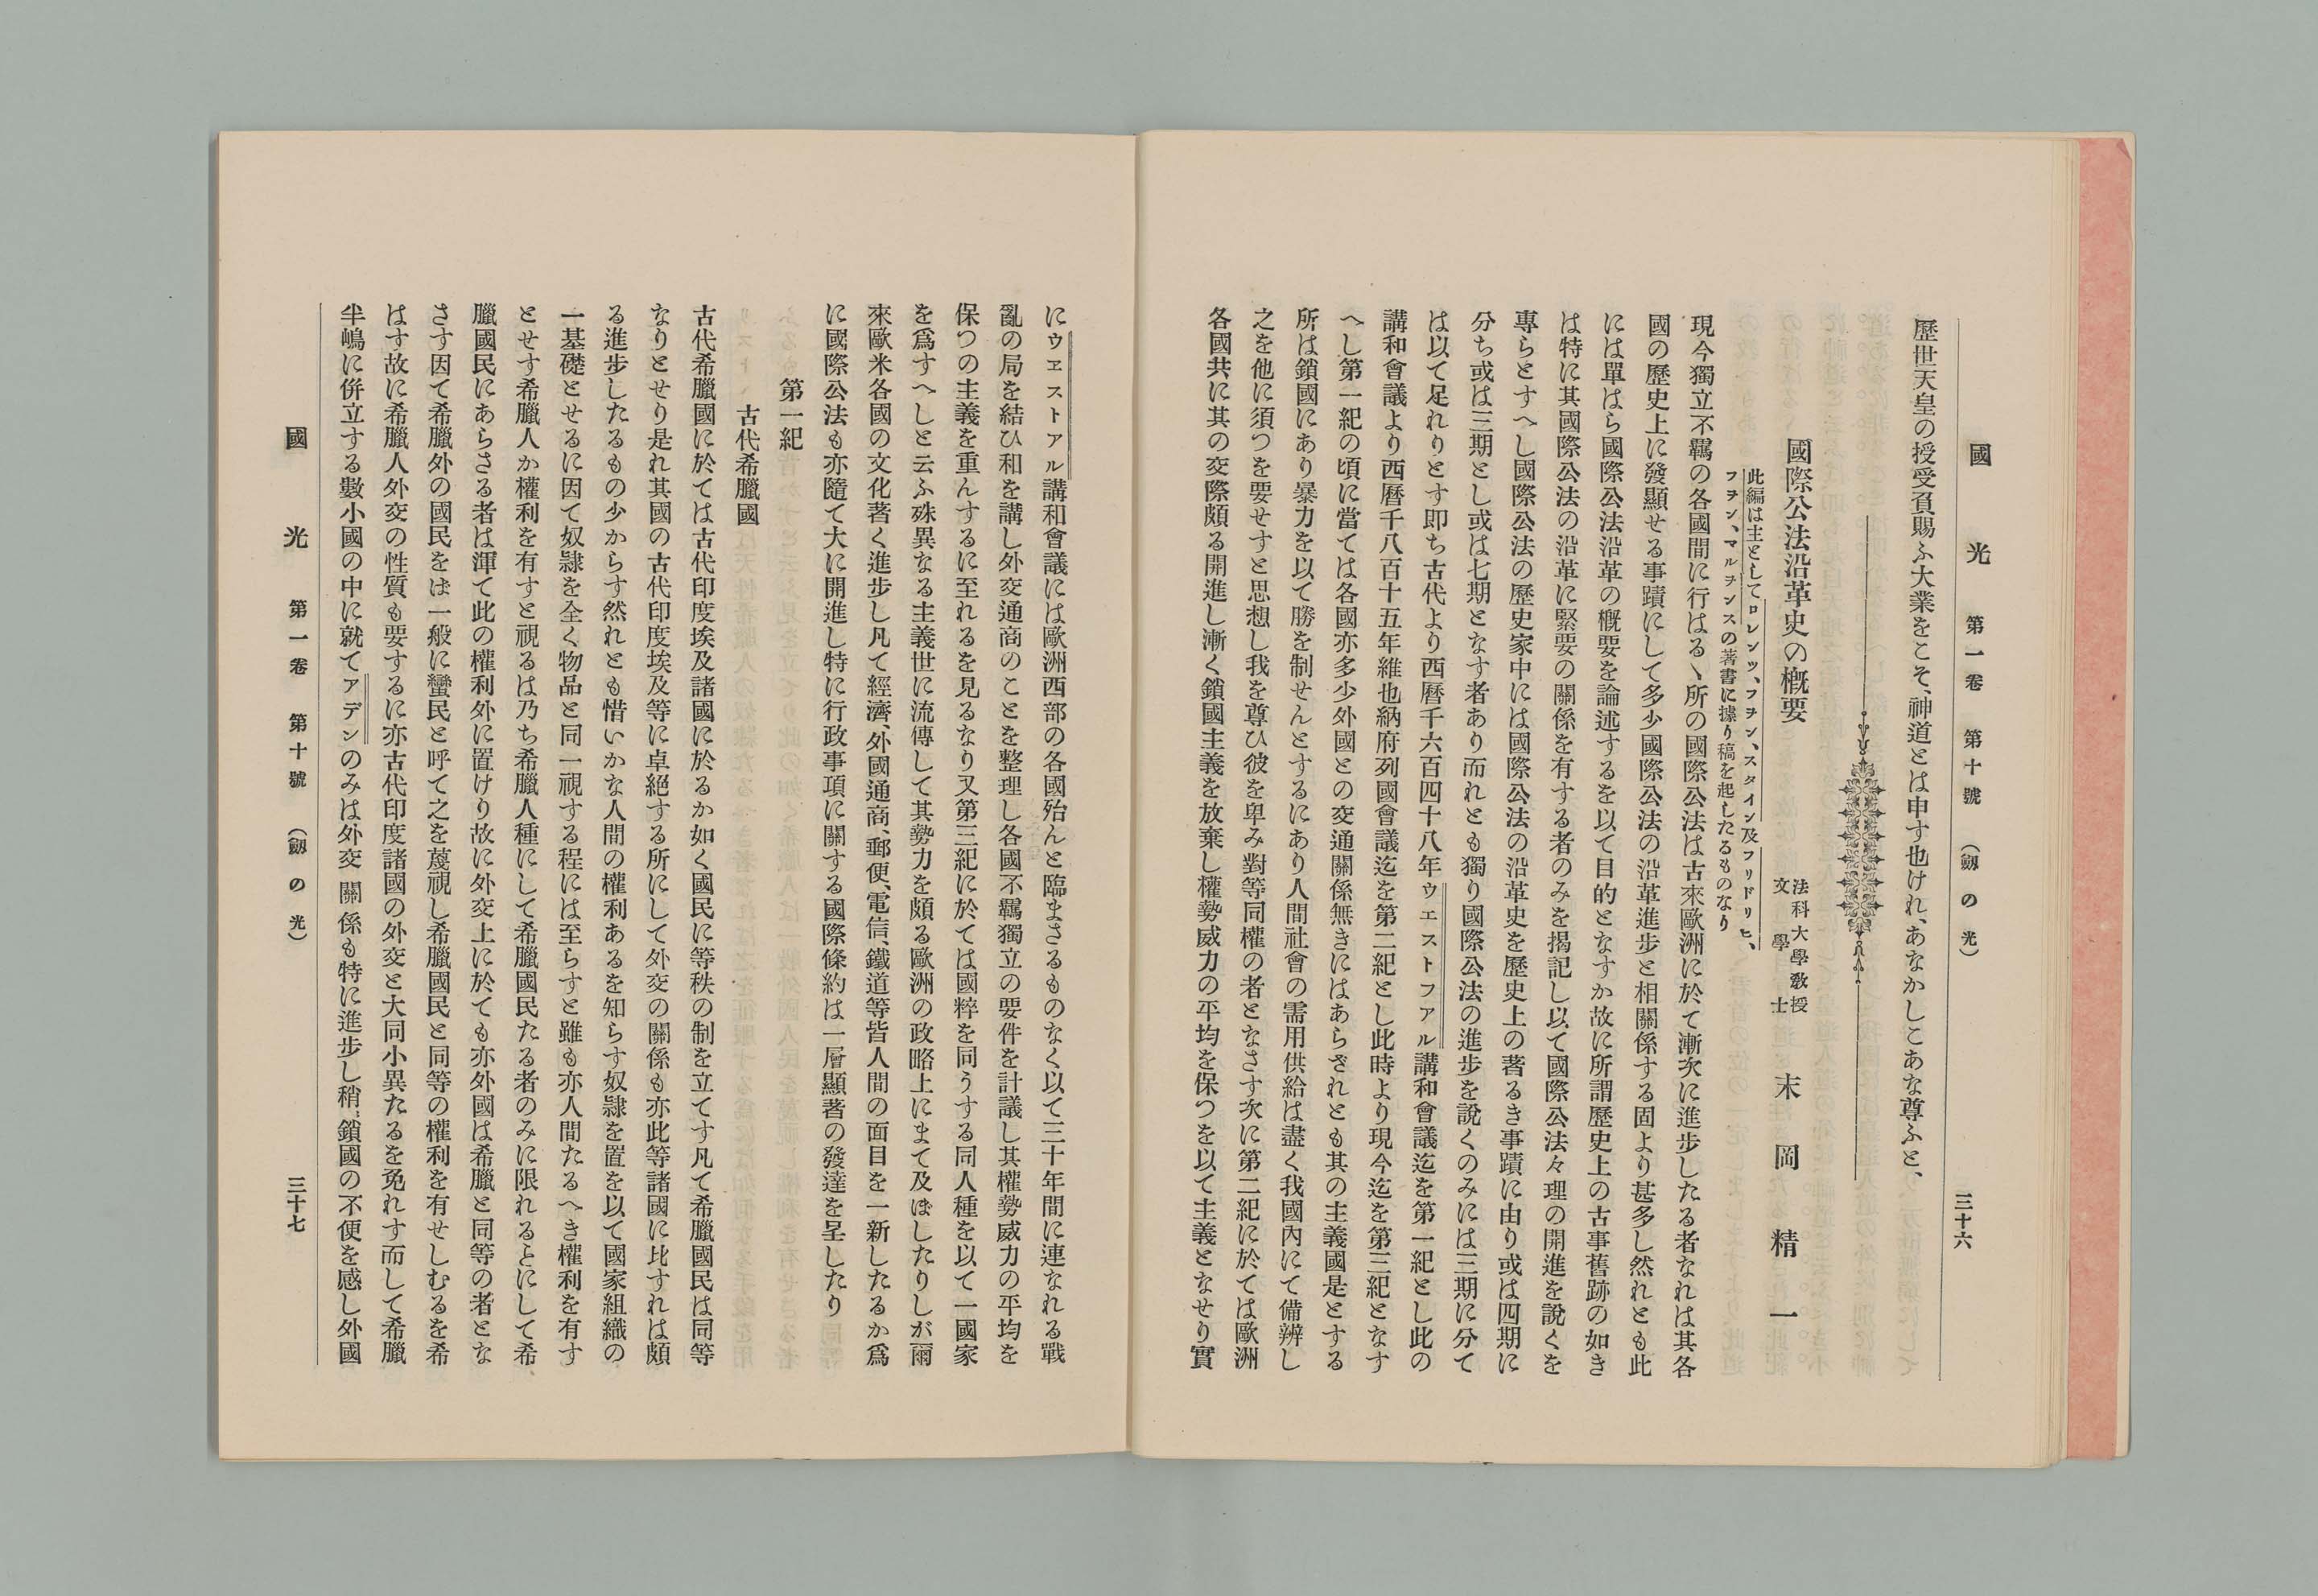 國光 第一卷 第十號 (劔の光) 三十六
歷世天皇の授受亙賜ふ大業をこそ、神道とは申す也けれ、あなかしこあな尊ふと、
國際公法沿革史の槪要
法科大學敎授
文學士
末岡精一
此編は主としてロレンツ、フヲン、スタイン及フリドリヒ、
フヲン、マルヲンスの著書に據り稿を起したるものなり
現今獨立不羈の各國間に行はるヽ所の國際公法は古來歐洲に於て漸次に進步したる者なれは其各
國の歷史上に發顯せる事蹟にして多少國際公法の沿革進步と相關係する固より甚多し然れとも此
には單はら國際公法沿革の槪要を論述するを以て目的となすか故に所謂歷史上の古事舊跡の如き
は特に其國際公法の沿革に緊要の關係を有する者のみを揭記し以て國際公法々理の開進を說くを
專らとすへし國際公法の歷史家中には國際公法の沿革史を歷史上の著るき事蹟に由り或は四期に
分ち或は三期とし或は七期となす者あり而れとも獨り國際公法の進步を說くのみには三期に分て
は以て足れりとす卽ち古代より西曆千六百四十八年ウエストフアル講和會議迄を第一紀とし此の
講和會議より西曆千八百十五年維也納府列國會議迄を第二紀とし此時より現今迄を第三紀となす
へし第一紀の頃に當ては各國亦多少外國との交通關係無きにはあらざれとも其の主義國是とする
所は鎖國にあり暴力を以て勝を制せんとするにあり人間社會の需用供給は盡く我國內にて備辨し
之を他に須つを要せすと思想し我を尊ひ彼を卑み對等同權の者となさす次に第二紀に於ては歐洲
各國共に其の交際頗る開進し漸く鎖國主義を放棄し權勢威力の平均を保つを以て主義となせり實
にウヱストアル講和會議には歐洲西部の各國殆んと臨まさるものなく以て三十年間に連なれる戰
亂の局を結ひ和を講し外交通商のことを整理し各國不羈獨立の要件を計議し其權勢威力の平均を
保つの主義を重んするに至れるを見るなり又第三紀に於ては國粹を同うする同人種を以て一國家
を爲すへしと云ふ殊異なる主義世に流傳して其勢力を頗る歐洲の政略上にまて及ぼしたりしが爾
來歐米各國の文化著く進步し凡て經濟、外國通商、郵便、電信、鐵道等皆人間の面目を一新したるか爲
に國際公法も亦隨て大に開進し特に行政事項に關する國際條約は一層顯著の發達を呈したり
第一紀
古代希臘國
古代希臘國に於ては古代印度埃及諸國に於るか如く國民に等秩の制を立てす凡て希臘國民は同等
なりとせり是れ其國の古代印度埃及等に卓絕する所にして外交の關係も亦此等諸國に比すれは頗
る進步したるもの少からす然れとも惜いかな人間の權利あるを知らす奴隷を置を以て國家組織の
一基礎とせるに因て奴隷を全く物品と同一視する程には至らすと雖も亦人間たるへき權利を有す
とせす希臘人か權利を有すと視るは乃ち希臘人種にして希臘國民たる者のみに限れるとにして希
臘國民にあらさる者は渾て此の權利外に置けり故に外交上に於ても亦外國は希臘と同等の者とな
さす因て希臘外の國民をは一般に蠻民と呼て之を蔑視し希臘國民と同等の權利を有せしむるを希
はす故に希臘人外交の性質も要するに亦古代印度諸國の外交と大同小異たるを免れす而して希臘
半嶋に併立する數小國の中に就てアデンのみは外交關係も特に進步し稍鎖國の不便を感し外國
國光 第一卷 第十號 (劔の光) 三十七